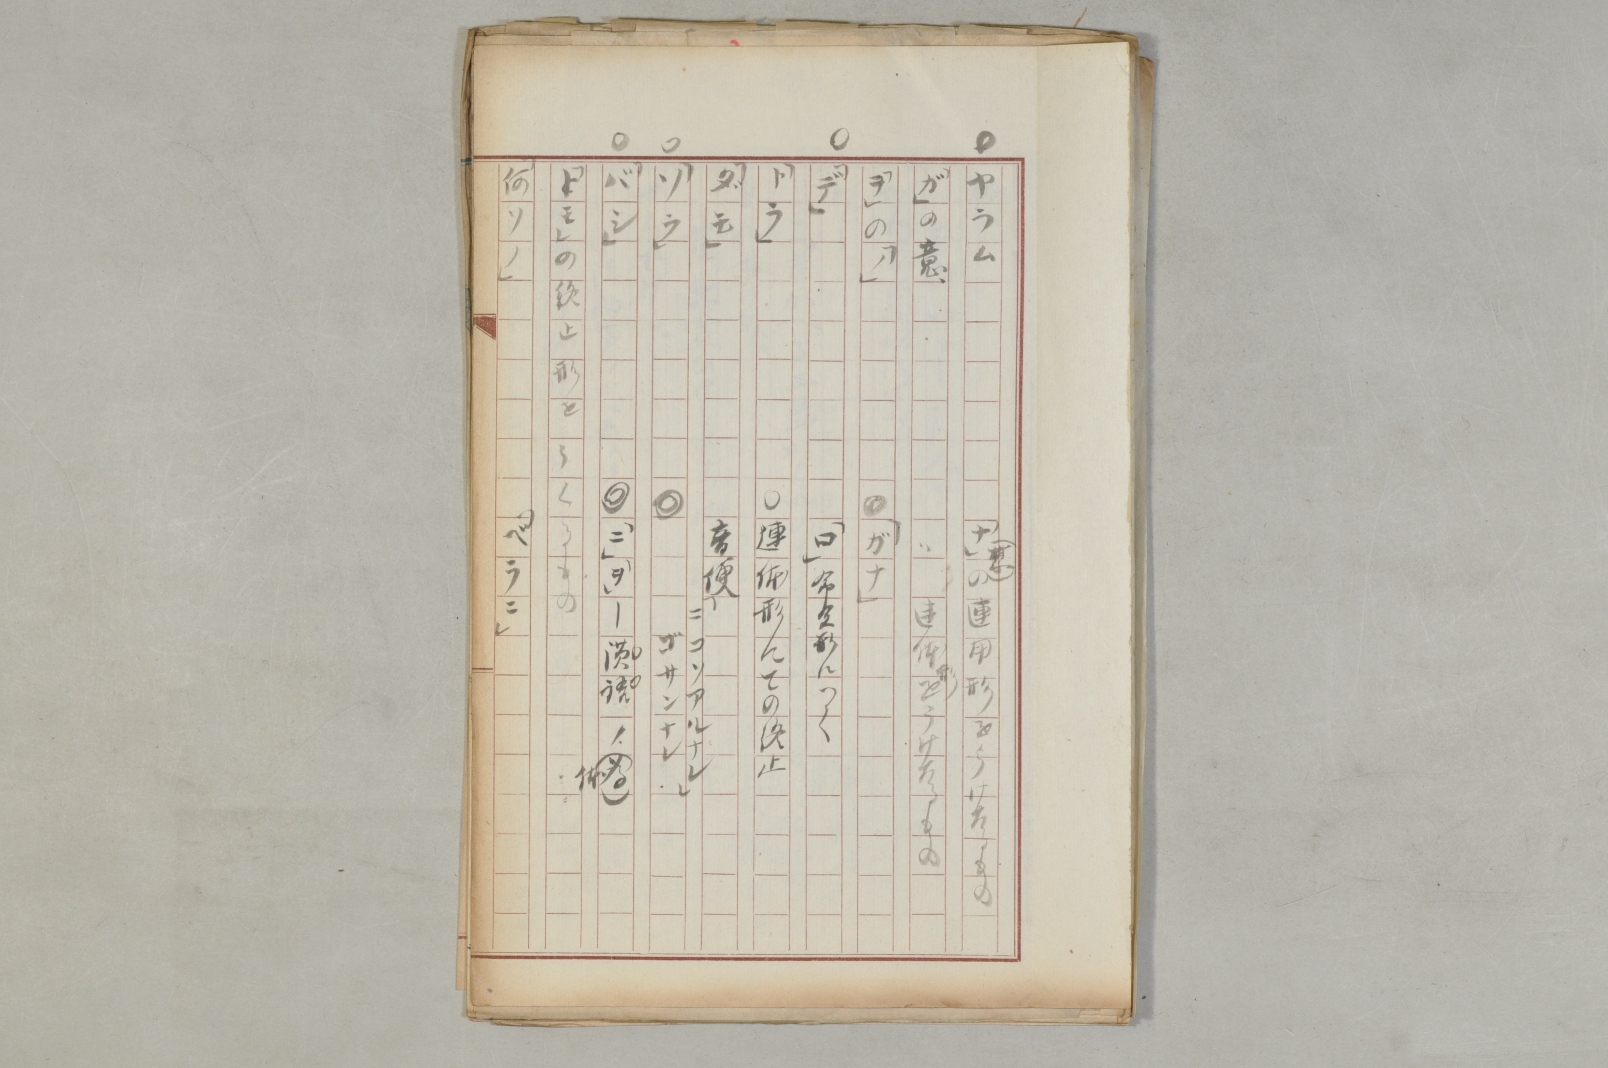 ヤラム
「ナ」の連用形をうけたるもの
「ガ」の意
〃 連体形をうけたるもの
「ヲ」の「ノ」
「ガナ」
「デ」
「ロ」命令形につく
「トラ」
連体形にての終止
「ダモ」
音便
ニコソアルナレ」
ゴサンナレ
「ソラ」
「バシ」
「ニ」「ヲ」ー漢語ノ
体
「トモ」の終止形をうくるもの
「何ソノ」
「ベラニ」